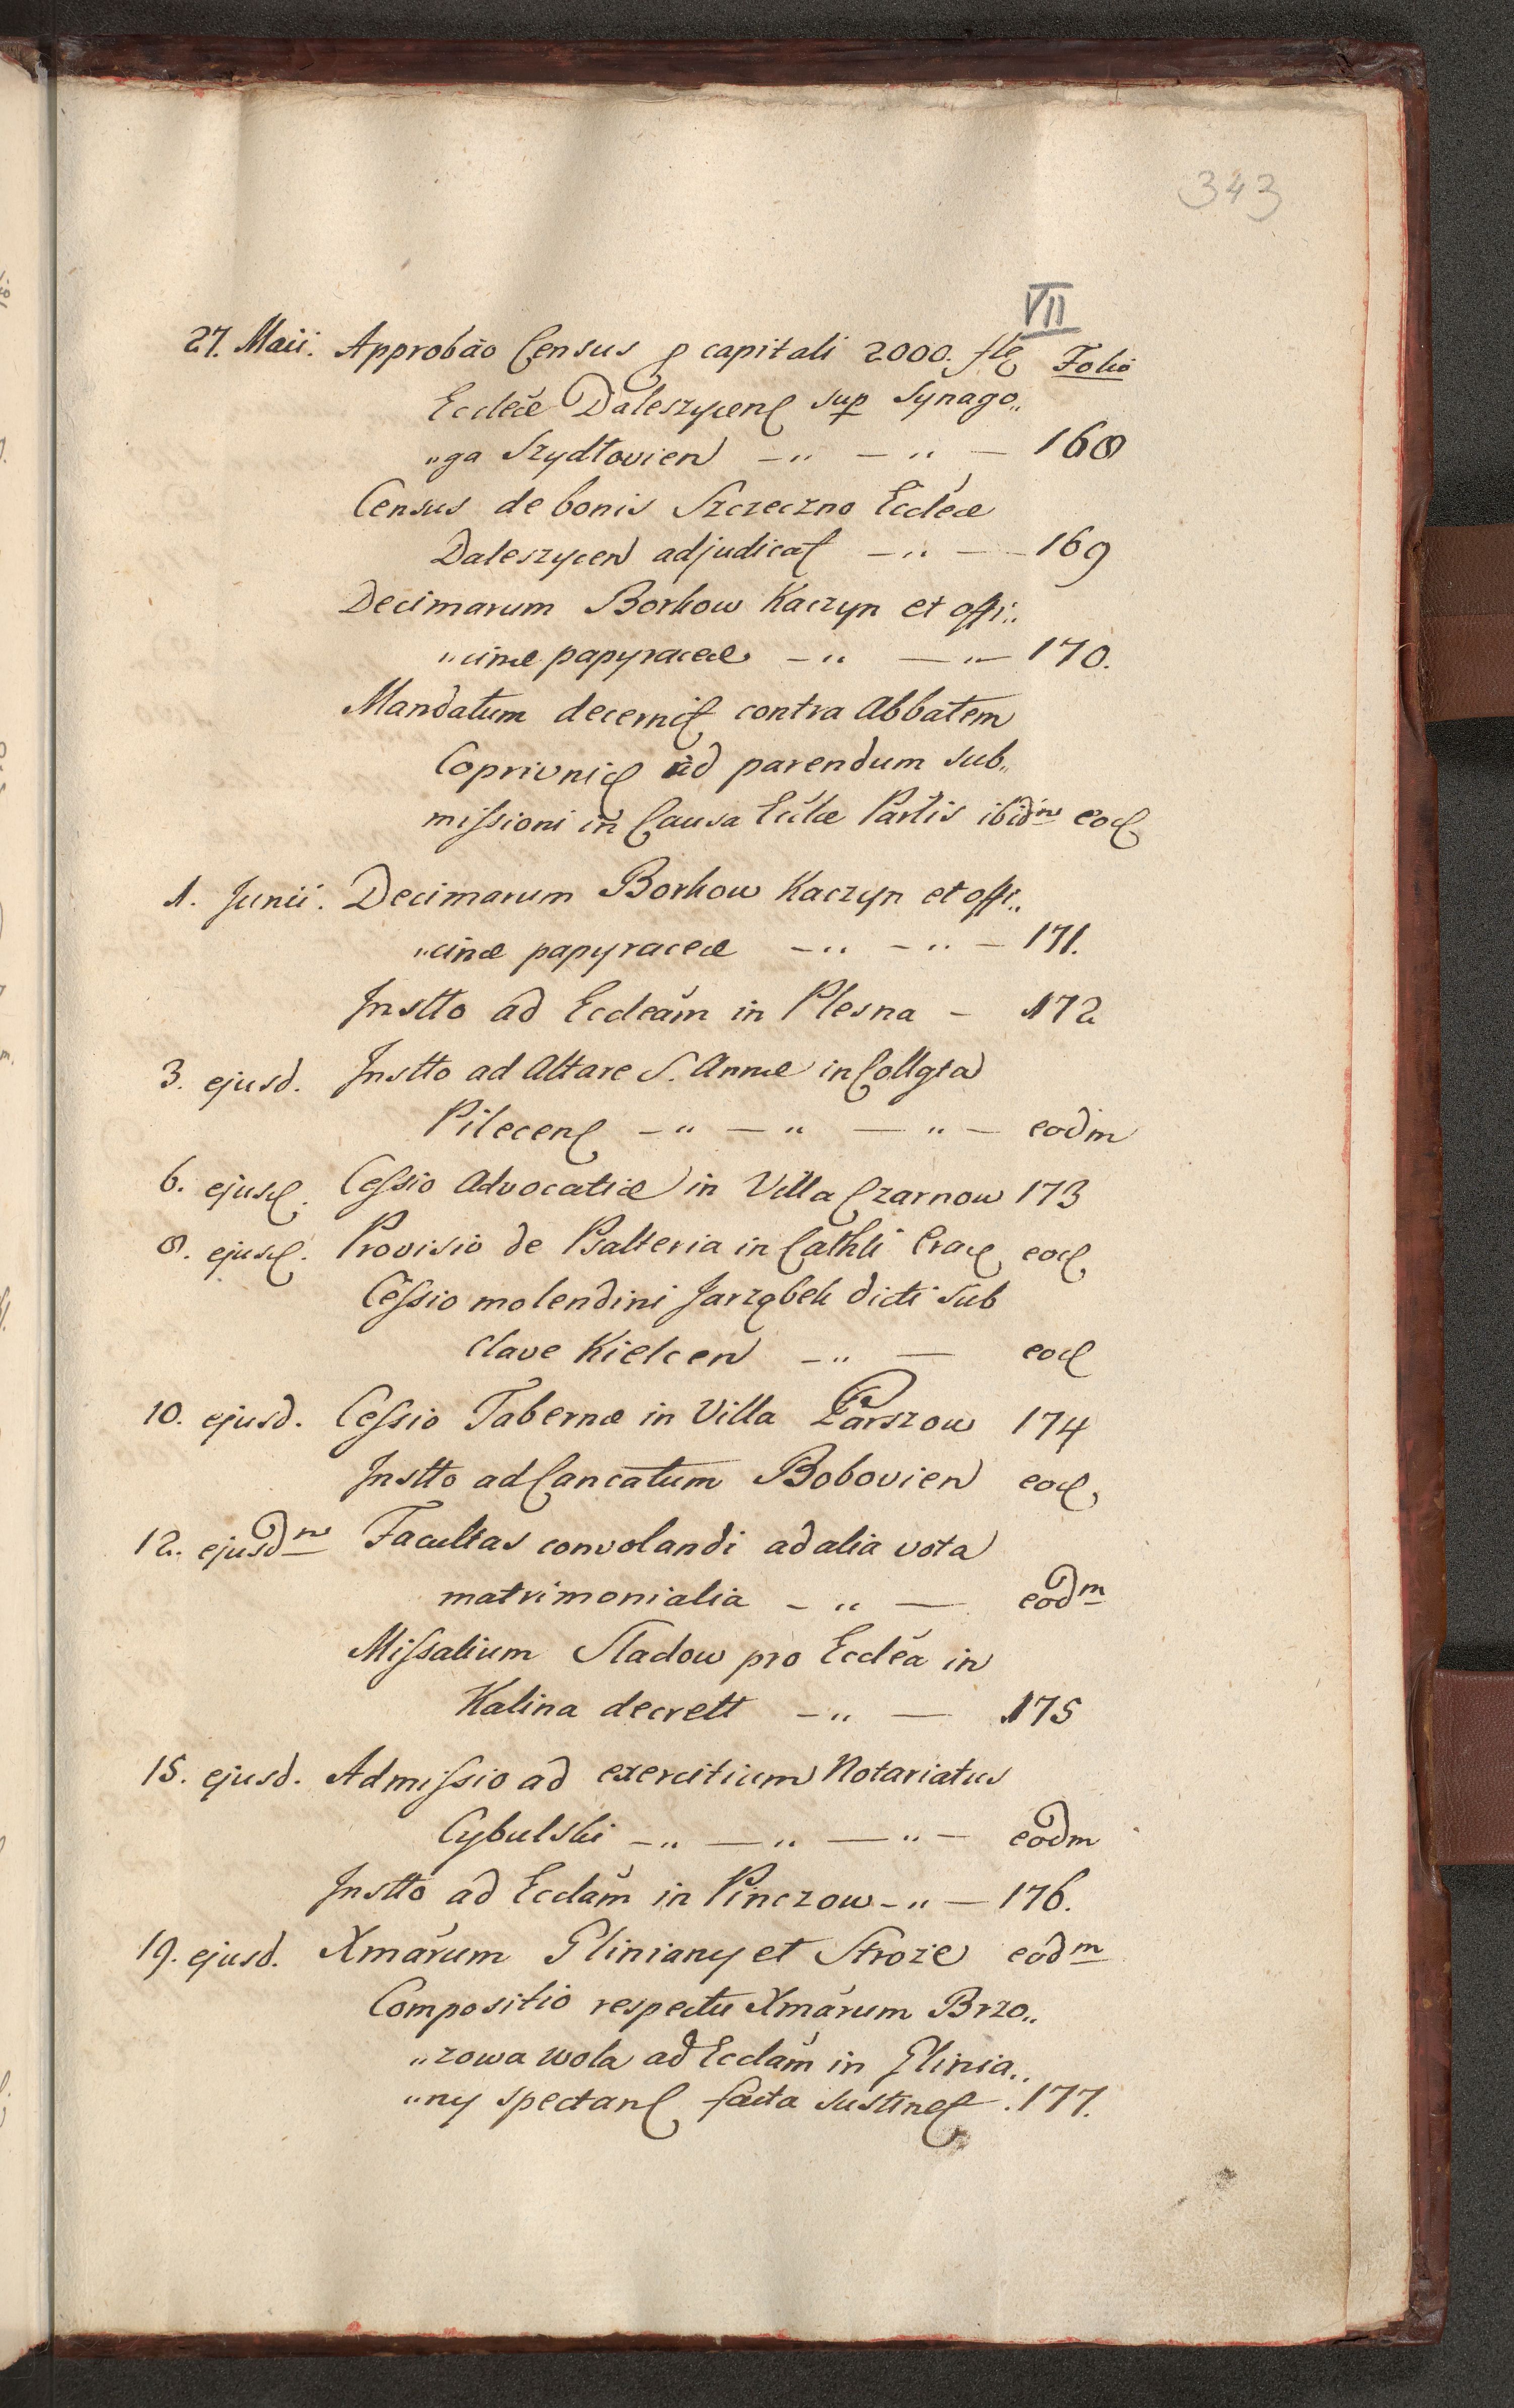 343
VII
27. Maii. Approbão Census p capitali 2000. fl Folio
Eccleæ Daleszycen sup Synago„
„ga Szydłovien — „ — „ — 168
Census de bonis Szczeczno Eccleæ
Daleszycen adjudicat — „ — 169
Decimarum Borkow Kaczyn et offi„
„cinæ papyraceæ — „ — „ — 170.
Mandatum decernit contra Abbatem
Coprivnic ad parendum sub„
missioni in Causa Eccliæ Partis ibidm eod
1. Junii. Decimarum Borkow Kaczyn et offi„
„cinæ papyraceæ — „ — „ — 171.
Instto ad Eccleam in Plesna — 172
3. ejusd. Instto ad Altare S. Annæ in Collgta
Pilecen — „ — „ — „ — eodm
6. ejusd. Cessio Advocatiæ in Villa Czarnow 173
8. ejusd. Provisio de Psalteria in Cathli Crac eod
Cessio molendini Jarząbek dicti sub
clave Kielcen — „ — eod
10. ejusd. Cessio Tabernæ in Villa Parszow 174
Instto ad Cancatum Bobovien eod
12. ejusdm Facultas convolandi ad alia vota
matrimonialia — „ — eodm
Missalium Sladow pro Ecclea in
Kalina decrett — „ — 175
15. ejusd. Admissio ad exercitium Notariatus
Cybulski — „ — „ — „ — eodm
Instto ad Ecclam in Pinczow — „ — 176.
19. ejusd. Xmarum Gliniany et Stroze eodm
Compositio respectu Xmarum Brzo„
„zowa wola ad Ecclam in Glinia„
„ny spectan facta sustinet . 177.